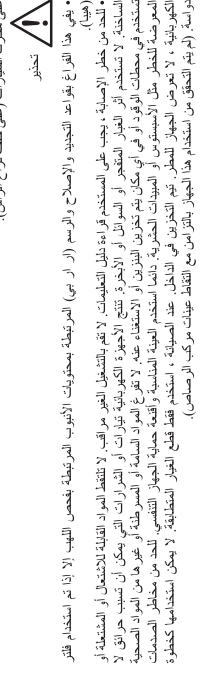 تحذير
• يفي هذا الفراغ بقواعد التجديد والإصلاح والرسم (ار ار بي) المرتبطة بمحتويات الأنبوب المرتبطة بفحص اللهب إلا إذا تم استخدام فلتر
(هيبا).
• للحد من خطر الإصابة ، يجب على المستخدم قراءة دليل التعليمات. لا تقم بالتشغيل الغير مراقب. لا تلتقط المواد القابلة للاشتعال أو المشتعلة أو
الساخنة. لا تستخدم اثر الغبار المتفجر أو السوائل أو الأبخرة. تنتج الأجهزة الكهربائية تيارات أو الشرارات التي يمكن أن تسبب حرائق. لا
تستخدم في محطات الوقود أو في أي مكان يتم تخزين البنزين أو الاستغناء عنه. لا تفرغ المواد السامة أو المسرطنة أو غيرها من المواد الصحية
المعرضة للخطر مثل الاسبستوس أو المبيدات الحشرية. دائما استخدم العينة المناسبة وأقنعة حماية الجهاز التنفسي. للحد من مخاطر الصدمات
الكهربائية ، لا تعرض الجهاز للمطر. تيم التخزين في الداخل. عند الصيانة ، استخدم فقط قطع الغيار المتطابقة. لا يمكن استخدامها كخطوة
دواسة. (لم يتم التحقق من استخدام هذا الجهاز بالتزامن مع التقاط عينات مركب الرصاص).